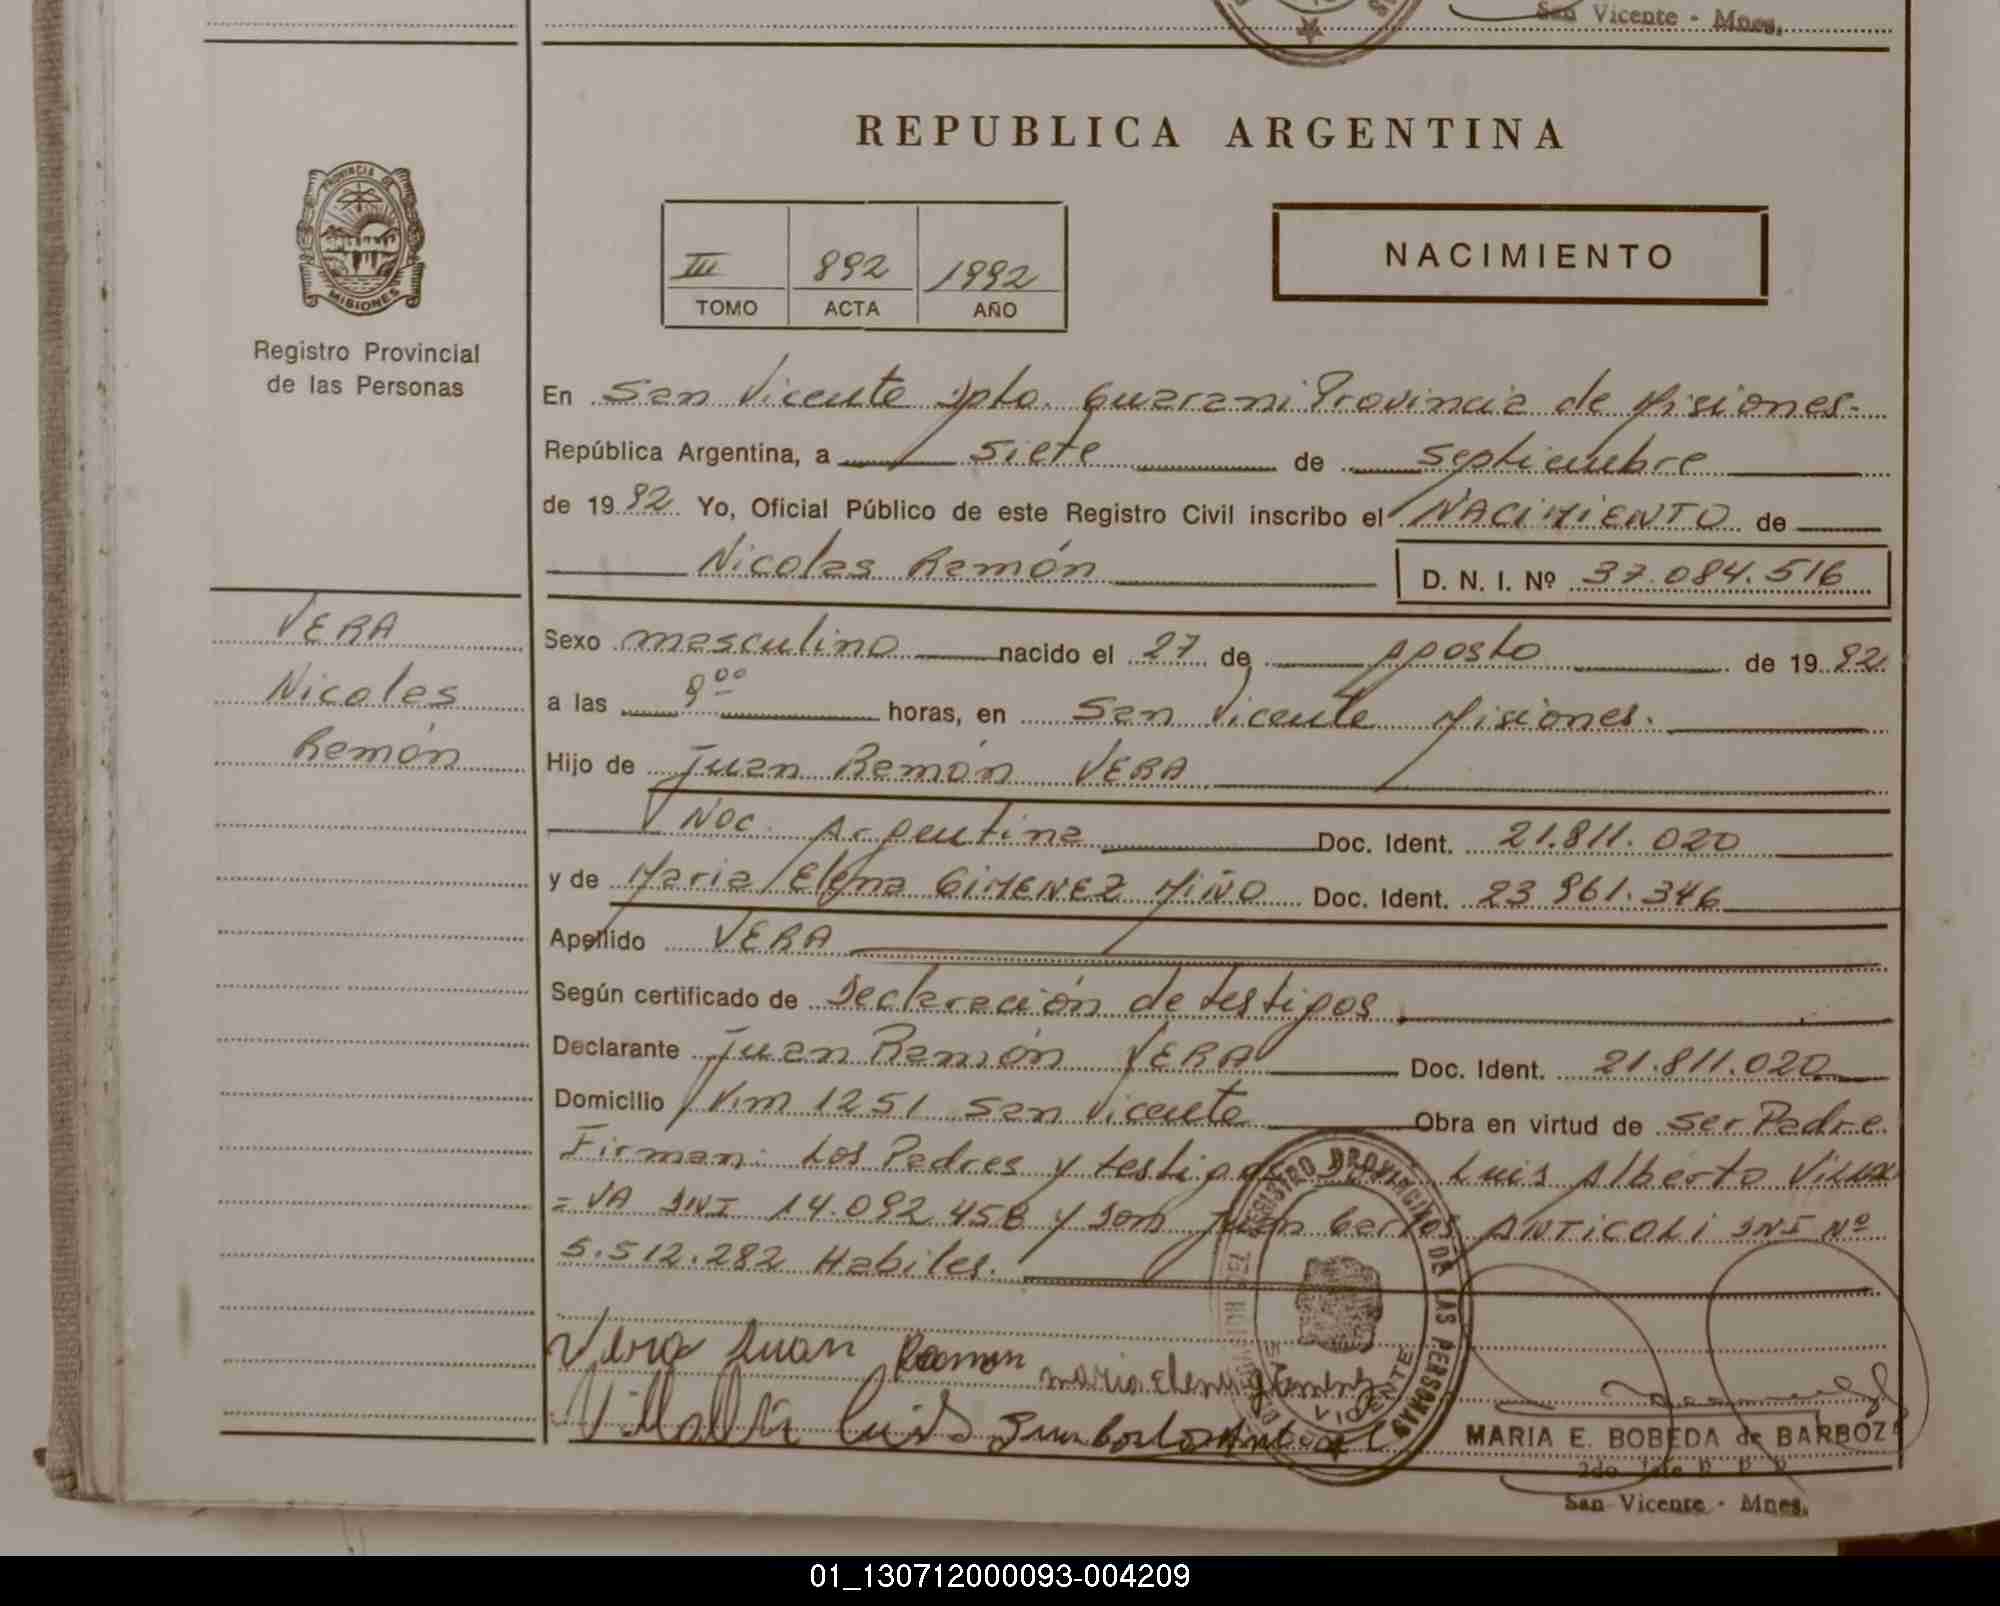 San Vicente - Mnes.
REPUBLICA ARGENTINA
PROVINCIA DE
MISIONES
Registro Provincial
de las Personas
III 892 1992
TOMO ACTA AÑO
NACIMIENTO
En San Vicente Dpto. Guarani Provincia de Misiones.-
República Argentina, a siete de septiembre
de 1992 Yo, Oficial Público de este Registro Civil inscribo el NACIMIENTO de
Nicolas Ramón D. N. I. Nº 37.084.516
VERA
Nicolas
Ramón
Sexo masculino nacido el 27 de Agosto de 1992
a las 9⁰⁰ horas, en San Vicente Misiones.
Hijo de Juan Ramón VERA
Nac. Argentina Doc. Ident. 21.811.020
y de Maria Elena GIMENEZ MIÑO Doc. Ident. 23 961.346
Apellido VERA
Según certificado de Declaración de testigos
Declarante Juan Ramón VERA Doc. Ident. 21.811.020
Domicilio Km 1251 San Vicente Obra en virtud de ser Padre
Firman: Los Padres y testigos Luis Alberto
DNI 14.092.458 y Don Juan Carlos ANTICOLI DNI Nº
5.512.282 Habiles.
Vera Juan Ramon
maria elena gimenez
Villalva Luis
REGISTRO PROVINCIAL DE LAS PERSONAS
VICENTE
MARIA E. BOBEDA de BARBOZA
2do Jefe R. P. P.
San Vicente - Mnes.
01_130712000093-004209